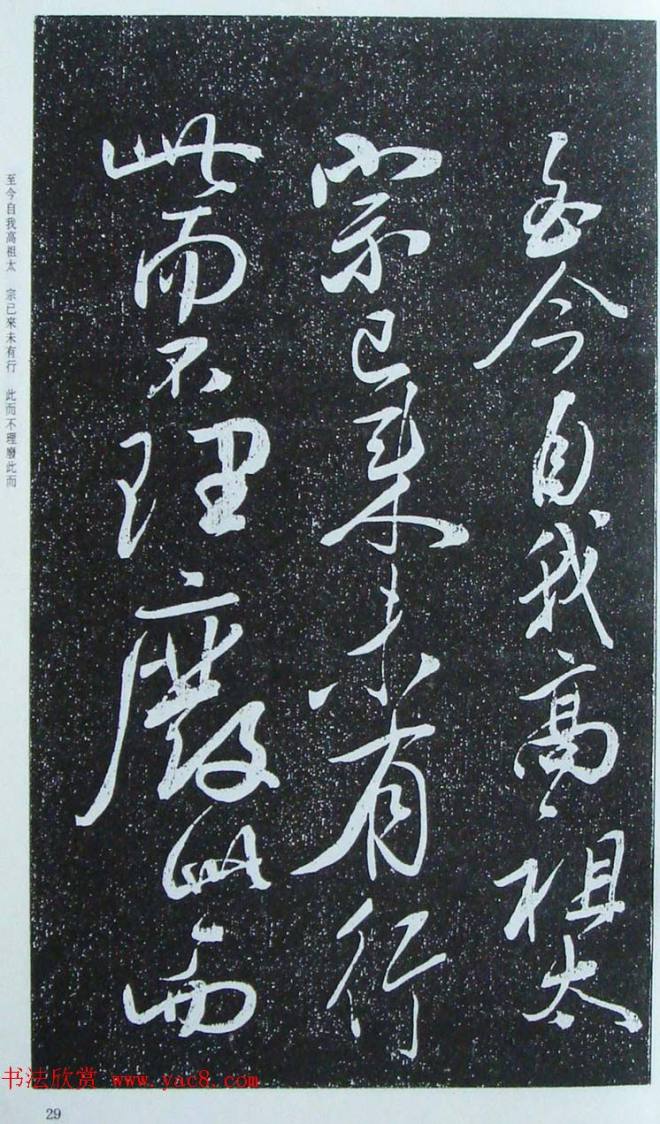 至今自我高祖太
宗已來未有行
此而不理廢此而
至今自我高祖太 宗已來未有行 此而不理廢此而
书法欣赏 www.yac8.com
29